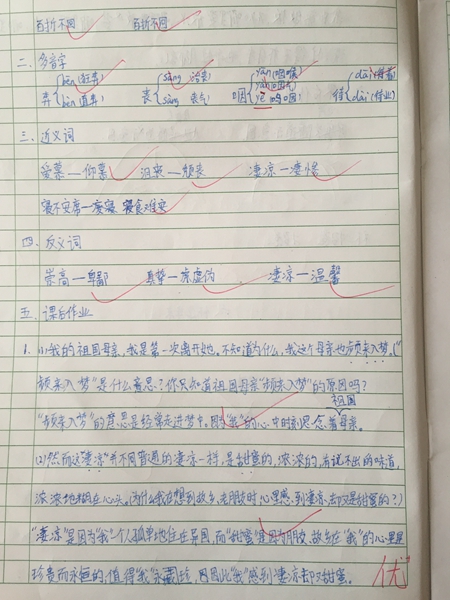 百折不回 百折不回
二、多音字
奔{bēn(狂奔) bèn(直奔) 丧{sāng 治丧 sàng 丧气 咽{yān咽喉 yàn咽气 yè 呜咽
三、近义词
爱慕—仰慕 沮丧—颓丧 凄凉—凄惨
寝不安席—废寝 寝食难安
四、反义词
崇高—卑鄙 真挚—虚伪 凄凉—温馨
五、课后作业
1. (1)我的祖国母亲,我是第一次离开她。不知道为什么,我这个母亲也频来入梦。("
频来入梦"是什么意思?你只知道祖国母亲"频来入梦"的原因吗?
祖国
"频来入梦"的意思是经常走进梦中。因为"我"的心中时刻思念着母亲。
(2)然而这"凄凉"并不同普通的凄凉一样,是甜蜜的,浓浓的,有说不出的味道,
浓浓地糊在心头。(为什么我在想到故乡、老朋友时心里感到凄凉,却又是甜蜜的?)
"凄凉"是因为"我"一个人孤单地住在异国,而"甜蜜"是因为朋友、故乡在"我"的心里是
珍贵而永恒的,值得"我"永藏,因此"我"感到凄凉却又甜蜜。
优